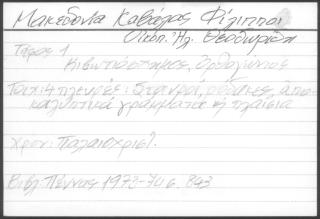 Μακεδονία Καβάλας Φίλιπποι
Οικόπ. Ηλ. Θεοδωρίδη
Τάφος 1
Κιβωτιόσχημος, Ορθογώνιος
Τοιχ: 4 πλευρές: Σταυροί, ρόδακες, απο-
καλυπτικά γράμματα ή πλαίσια
Χρον: Παλαιοχριστ.
Βιβλ: Πέννας 1973-74 σ. 843